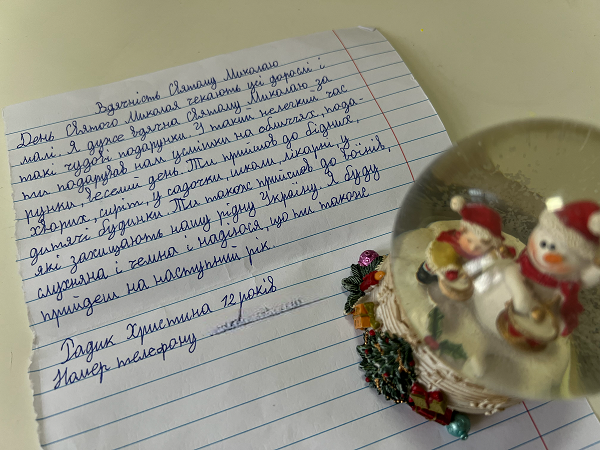 Вдячність Святому Миколаю
День Святого Миколая чекають усі дорослі і
малі. Я дуже вдячна Святому Миколаю за
такі чудові подарунки. У такий нелегкий час
ти подарував нам усмішки на обличчях, пода-
рунки, веселий день. Ти прийшов до бідних,
хворих, сиріт, у садочки, школи, лікарні, у
дитячі будинки. Ти також прийшов до воїнів,
які захищають нашу рідну Україну. Я буду
слухняна і чемна і надіюся, що ти також
прийдеш на наступний рік.
Гадик Христина 12 років
Номер телефону